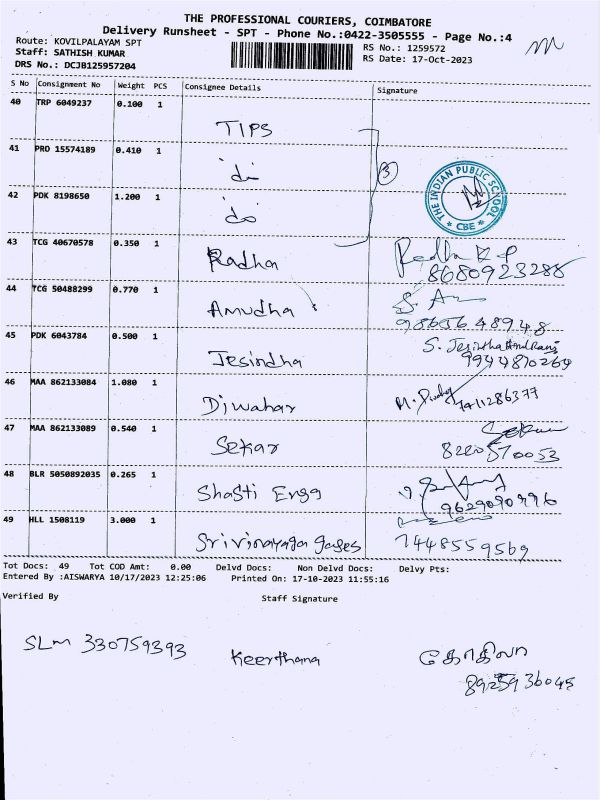 THE PROFESSIONAL COURIERS, COIMBATORE
Delivery Runsheet - SPT - Phone No.:0422-3505555 - Page No.:4
Route: KOVILPALAYAM SPT
Staff: SATHISH KUMAR
DRS No.: DCJB125957204
RS No.: 1259572
RS Date: 17-Oct-2023
S No Consignment No Weight PCS Consignee Details Signature
40 TRP 6049237 0.100 1 TIPS
41 PRO 15574189 0.410 1 di
42 PDK 8198650 1.200 1 do
3
THE INDIAN PUBLIC SCHOOL
* CBE *
43 TCG 40670578 0.350 1 Radha Radha K P
8680923288
44 TCG 50488299 0.770 1 Amudha
9865648948
45 PDK 6043784 0.500 1 Jesindha S.
9944870264
46 MAA 862133084 1.080 1 Diwahar 7411286377
47 MAA 862133089 0.540 1 Sekar Sekar
8220570053
48 BLR 5050892035 0.265 1 Shasti Engg
9629090796
49 HLL 1508119 3.000 1 Srivinayaga gases 7448559569
Tot Docs: 49 Tot COD Amt: 0.00 Delvd Docs: Non Delvd Docs: Delvy Pts:
Entered By :AISWARYA 10/17/2023 12:25:06 Printed On: 17-10-2023 11:55:16
Verified By Staff Signature
SLM 330759393 Keerthana கோகிலா
8925936045